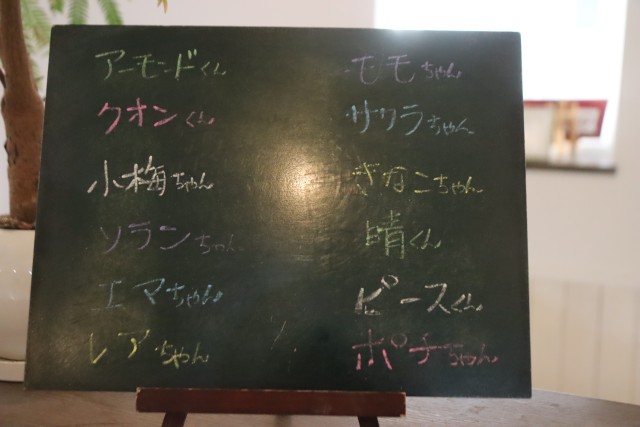 アーモンドくん
クオンくん
小梅ちゃん
ソランちゃん
エマちゃん
レアちゃん
モモちゃん
サクラちゃん
きなこちゃん
晴くん
ピースくん
ポチちゃん